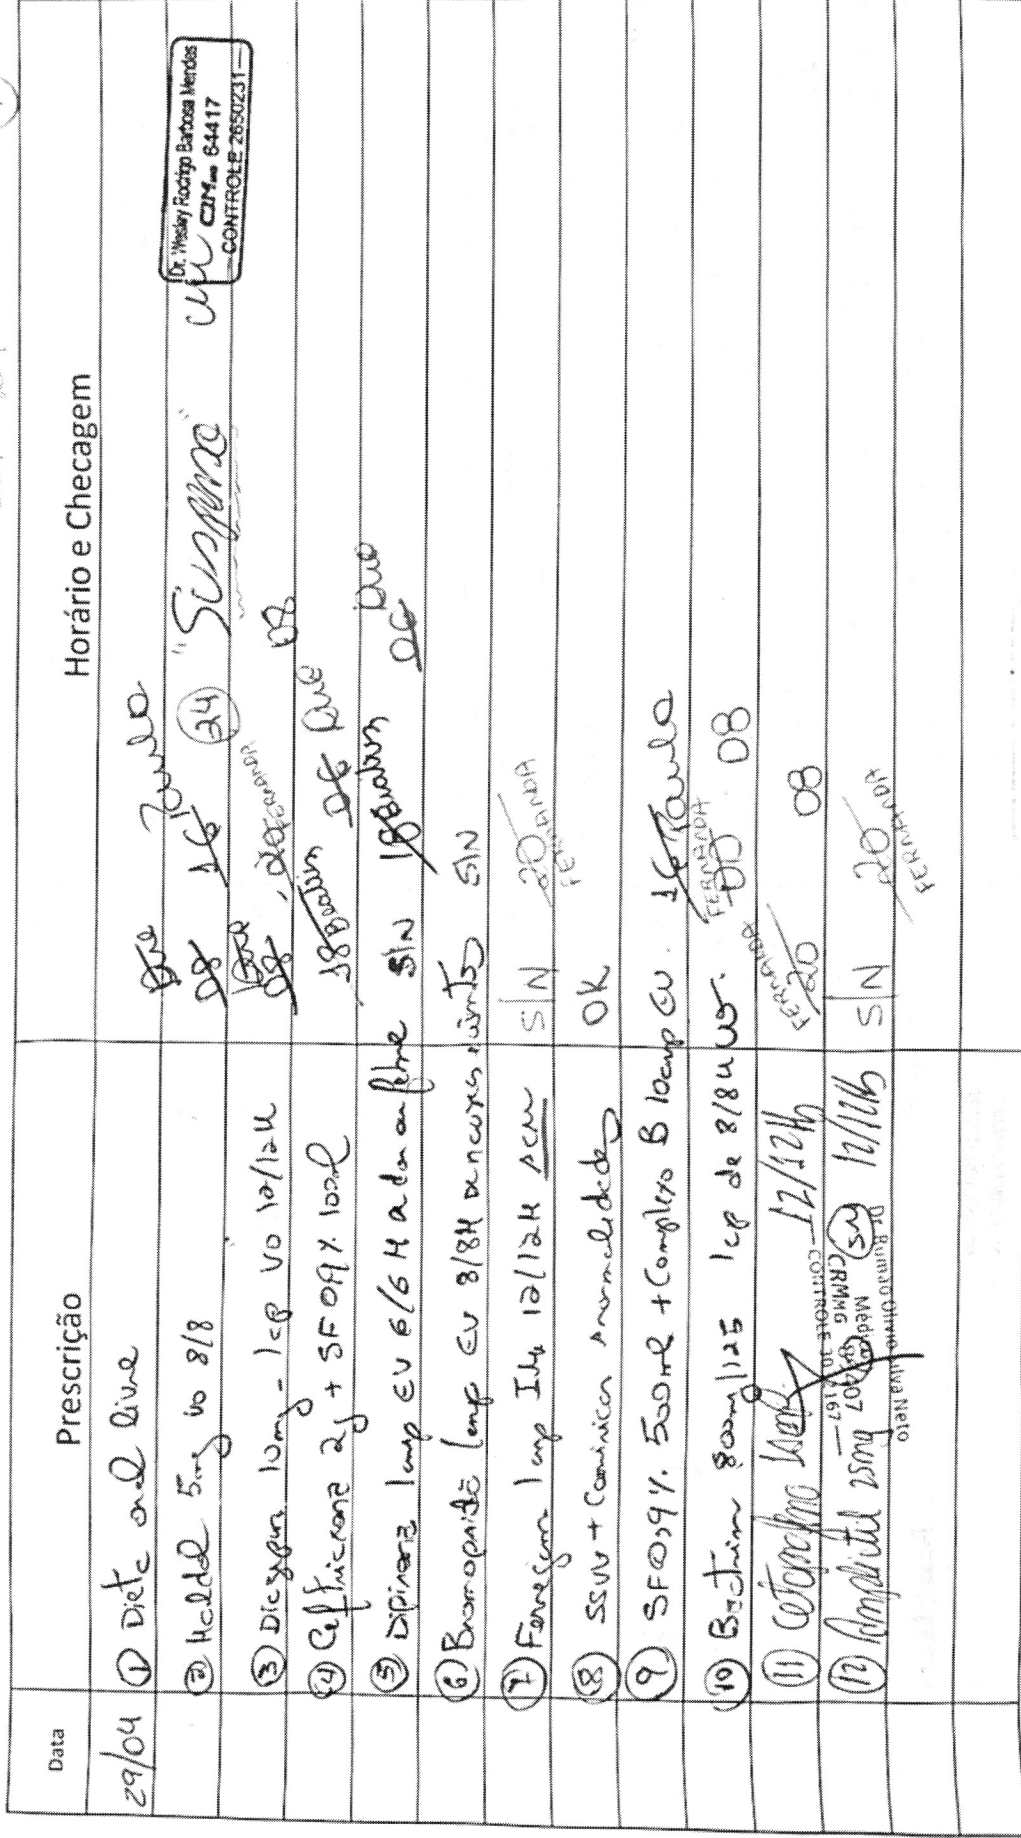 Data Prescrição Horário e Checagem
29/04 ① Dieta oral livre
② Haldol 5mg vo 8/8 08 16 24 "Suspenso"
Dr. Wesley Rodrigo Barbosa Mendes
CRM 64417
CONTROLE 2650231
③ Diazepam 10mg - 1cp VO 12/12H 08 20 FERNANDA 08
④ Ceftriaxona 2g + SF 0,9% 100ml 18 06
⑤ Dipirona 1amp EV 6/6 H a dor ou febre S/N 18 06
⑥ Bromoprida 1amp EV 8/8H S/N
⑦ Fenergan 1amp IM 12/12H S/N 20 FERNANDA
⑧ SSVV + Comunicar anormalidades OK
⑨ SF 0,9% 500ml + Complexo B 10amp EV. 16 Paula
⑩ Bactrim 800mg/125 1cp de 8/8H VO. 00 FERNANDA 08
⑪ 12/12h 20 FERNANDA 08
⑫ Amplictil 25mg SN 12/12h S/N 20 FERNANDA
Médico
CRMMG
CONTROLE